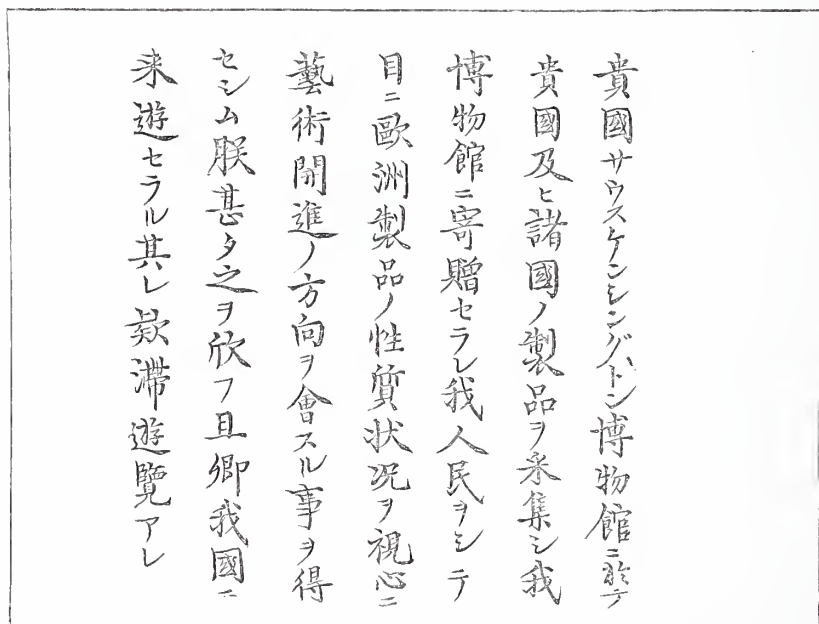 貴國サウスケンシングトン博物館ニ於テ
貴國及ヒ諸國ノ製品ヲ釆集シ我
博物館ニ寄贈セラレ我人民ヲシテ
目ニ歐洲製品ノ性質状况ヲ視心ニ
藝術開進ノ方向ヲ會スル事ヲ得
セシム朕甚タ之ヲ欣フ且卿我國ニ
来遊セラル其レ欵滞遊覽アレ